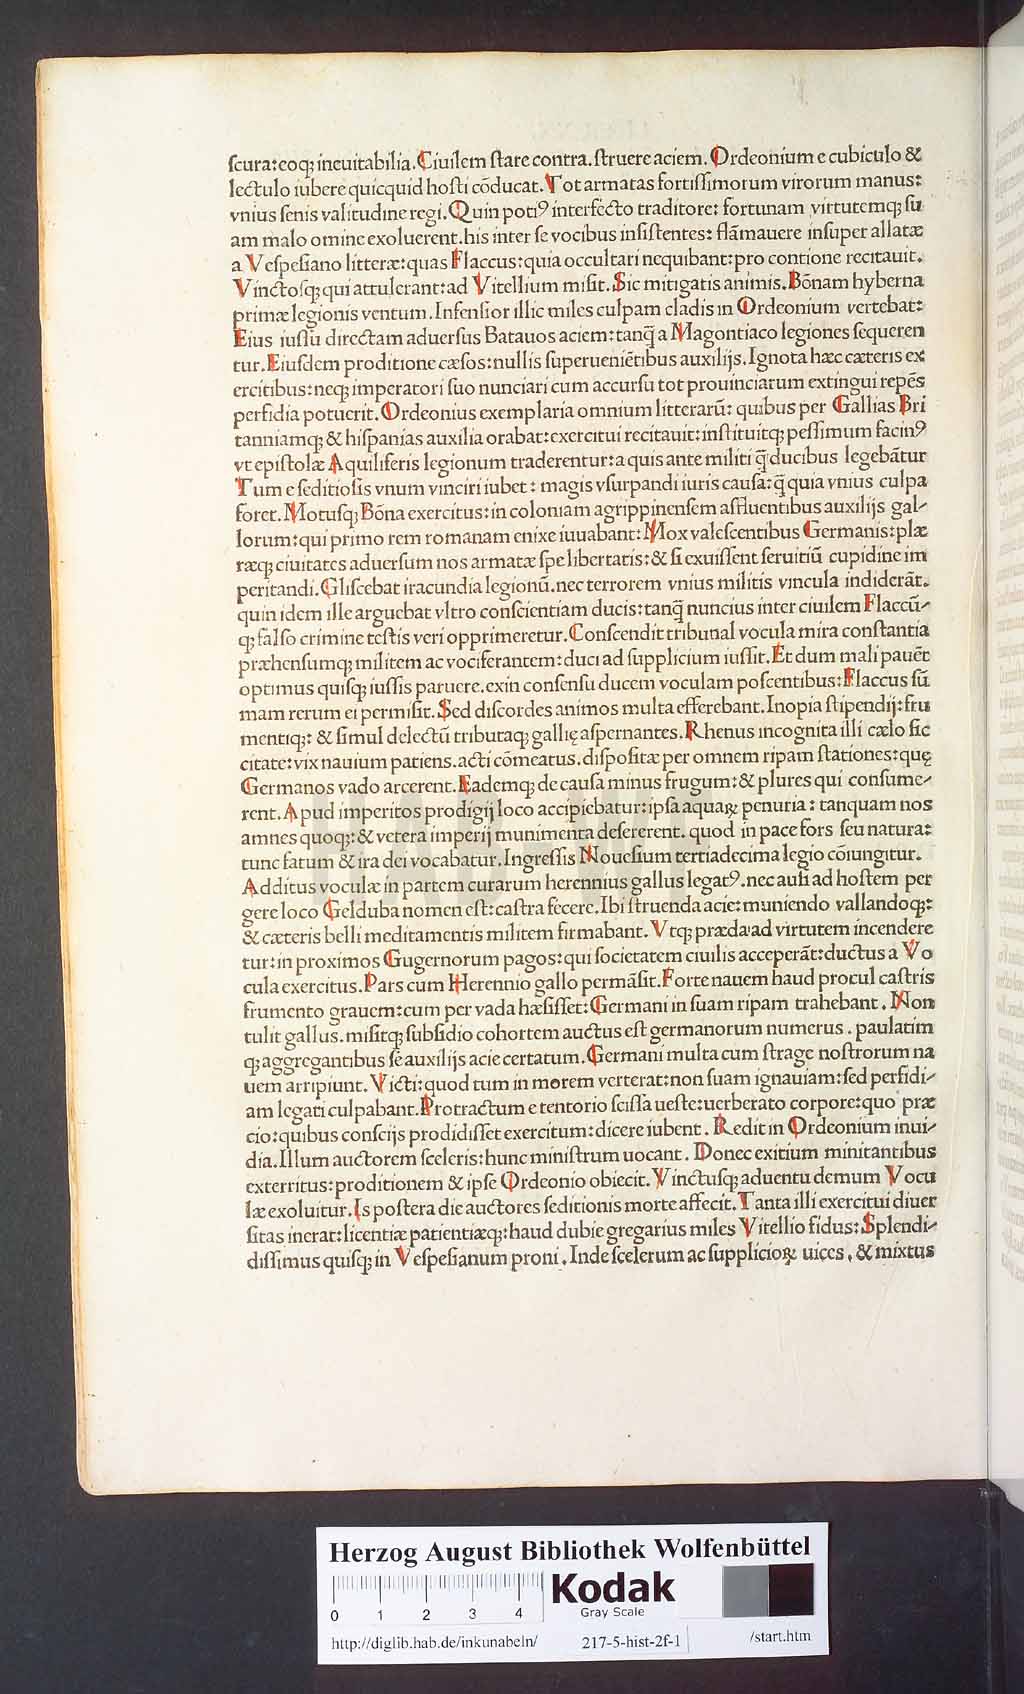 ſcura:eoq; incuitabilia. Ciuilem ſtare contra. ſtruere aciem. Ordeonium e cubiculo &
lectulo iubere quicquid hoſti cōducat. Tot armatas fortiſſimorum virorum manus:
vnius ſenis valitudine regi. Quin potiꝰ interfecto traditore: fortunam virtutemq; ſu
am malo omine exoluerent. his inter ſe vocibus inſiſtentes: flāmauere inſuper allatæ
a Veſpeſiano litteræ: quas Flaccus: quia occultari nequibant: pro contione recitauit.
Vinctoſq; qui attulerant: ad Vitellium miſit. Sic mitigatis animis. Bōnam hyberna
primæ legionis ventum. Infenſior illic miles culpam cladis in Ordeonium vertebat:
Eius iuſſu directam aduerſus Batauos aciem: tanq̄ a Magontiaco legiones ſequeren
tur. Eiuſdem proditione cæſos: nullis ſuperueniētibus auxilijs. Ignota hæc cæteris ex
ercitibus: neq; imperatori ſuo nunciari cum accurſu tot prouinciarum extingui repēs
perfidia potuerit. Ordeonius exemplaria omnium litterarū: quibus per Gallias Bri
tanniamq; & hiſpanias auxilia orabat: exercitui recitauit: inſtituitq; peſſimum facinꝰ
vt epiſtolæ Aquiliferis legionum traderentur: a quis ante militi q̄ ducibus legebātur
Tum e ſeditioſis vnum vinciri iubet: magis vſurpandi iuris cauſa: q̄ quia vnius culpa
foret. Motuſq; Bōna exercitus: in coloniam agrippinenſem affluentibus auxilijs gal-
lorum: qui primo rem romanam enixe iuuabant: Mox valeſcentibus Germanis: plæ
ræq; ciuitates aduerſum nos armatæ ſpe libertatis: & ſi exuiſſent ſeruitiū cupidine im
peritandi. Gliſcebat iracundia legionū. nec terrorem vnius militis vincula indiderāt.
quin idem ille arguebat vltro conſcientiam ducis: tanq̄ nuncius inter ciuilem Flaccū-
q; falſo crimine teſtis veri opprimeretur. Conſcendit tribunal vocula mira conſtantia
præhenſumq; militem ac vociferantem: duci ad ſupplicium iuſſit. Et dum mali pauēt
optimus quiſq; iuſſis paruere. exin conſenſu ducem voculam poſcentibus: Flaccus ſū
mam rerum ei permiſit. Sed diſcordes animos multa efferebant. Inopia ſtipendij: fru
mentiq;: & ſimul delectū tributaq; gallię aſpernantes. Rhenus incognita illi cælo ſic
citate: vix nauium patiens. acti cōmeatus. diſpoſitæ per omnem ripam ſtationes: quę
Germanos vado arcerent. Eademq; de cauſa minus frugum: & plures qui conſume-
rent. Apud imperitos prodigij loco accipiebatur: ipſa aquaꝝ penuria: tanquam nos
amnes quoq;: & vetera imperij munimenta deſererent. quod in pace fors ſeu natura:
tunc fatum & ira dei vocabatur. Ingreſſis Noueſium tertiadecima legio cōiungitur.
Additus voculæ in partem curarum herennius gallus legatꝰ. nec auſi ad hoſtem per
gere loco Gelduba nomen eſt: caſtra fecere. Ibi ſtruenda acie: muniendo vallandoq;:
& cæteris belli meditamentis militem firmabant. Vtq; præda ad virtutem incendere
tur: in proximos Gugernorum pagos: qui ſocietatem ciuilis acceperāt: ductus a Vo
cula exercitus. Pars cum Herennio gallo permāſit. Forte nauem haud procul caſtris
frumento grauem: cum per vada hæſiſſet: Germani in ſuam ripam trahebant. Non
tulit gallus. miſitq; ſubſidio cohortem auctus eſt germanorum numerus. paulatim
q; aggregantibus ſe auxilijs acie certatum. Germani multa cum ſtrage noſtrorum na
uem arripiunt. Victi: quod tum in morem verterat: non ſuam ignauiam: ſed perfidi-
am legati culpabant. Protractum e tentorio ſciſſa ueſte: uerberato corpore: quo præ
cio: quibus conſcijs prodidiſſet exercitum: dicere iubent. Redit in Ordeonium inui-
dia. Illum auctorem ſceleris: hunc miniſtrum uocant. Donec exitium minitantibus
exterritus: proditionem & ipſe Ordeonio obiecit. Vinctuſq; aduentu demum Vocu
læ exoluitur. Is poſtera die auctores ſeditionis morte affecit. Tanta illi exercitui diuer
ſitas inerat: licentiæ patientiæq;: haud dubie gregarius miles Vitellio fidus: Splendi-
diſſimus quiſq; in Veſpeſianum proni. Inde ſcelerum ac ſupplicioꝝ uices. & mixtus
HAB-WF
Herzog August Bibliothek Wolfenbüttel
0 1 2 3 4
Kodak
Gray Scale
http://diglib.hab.de/inkunabeln/ 217-5-hist-2f-1 /start.htm